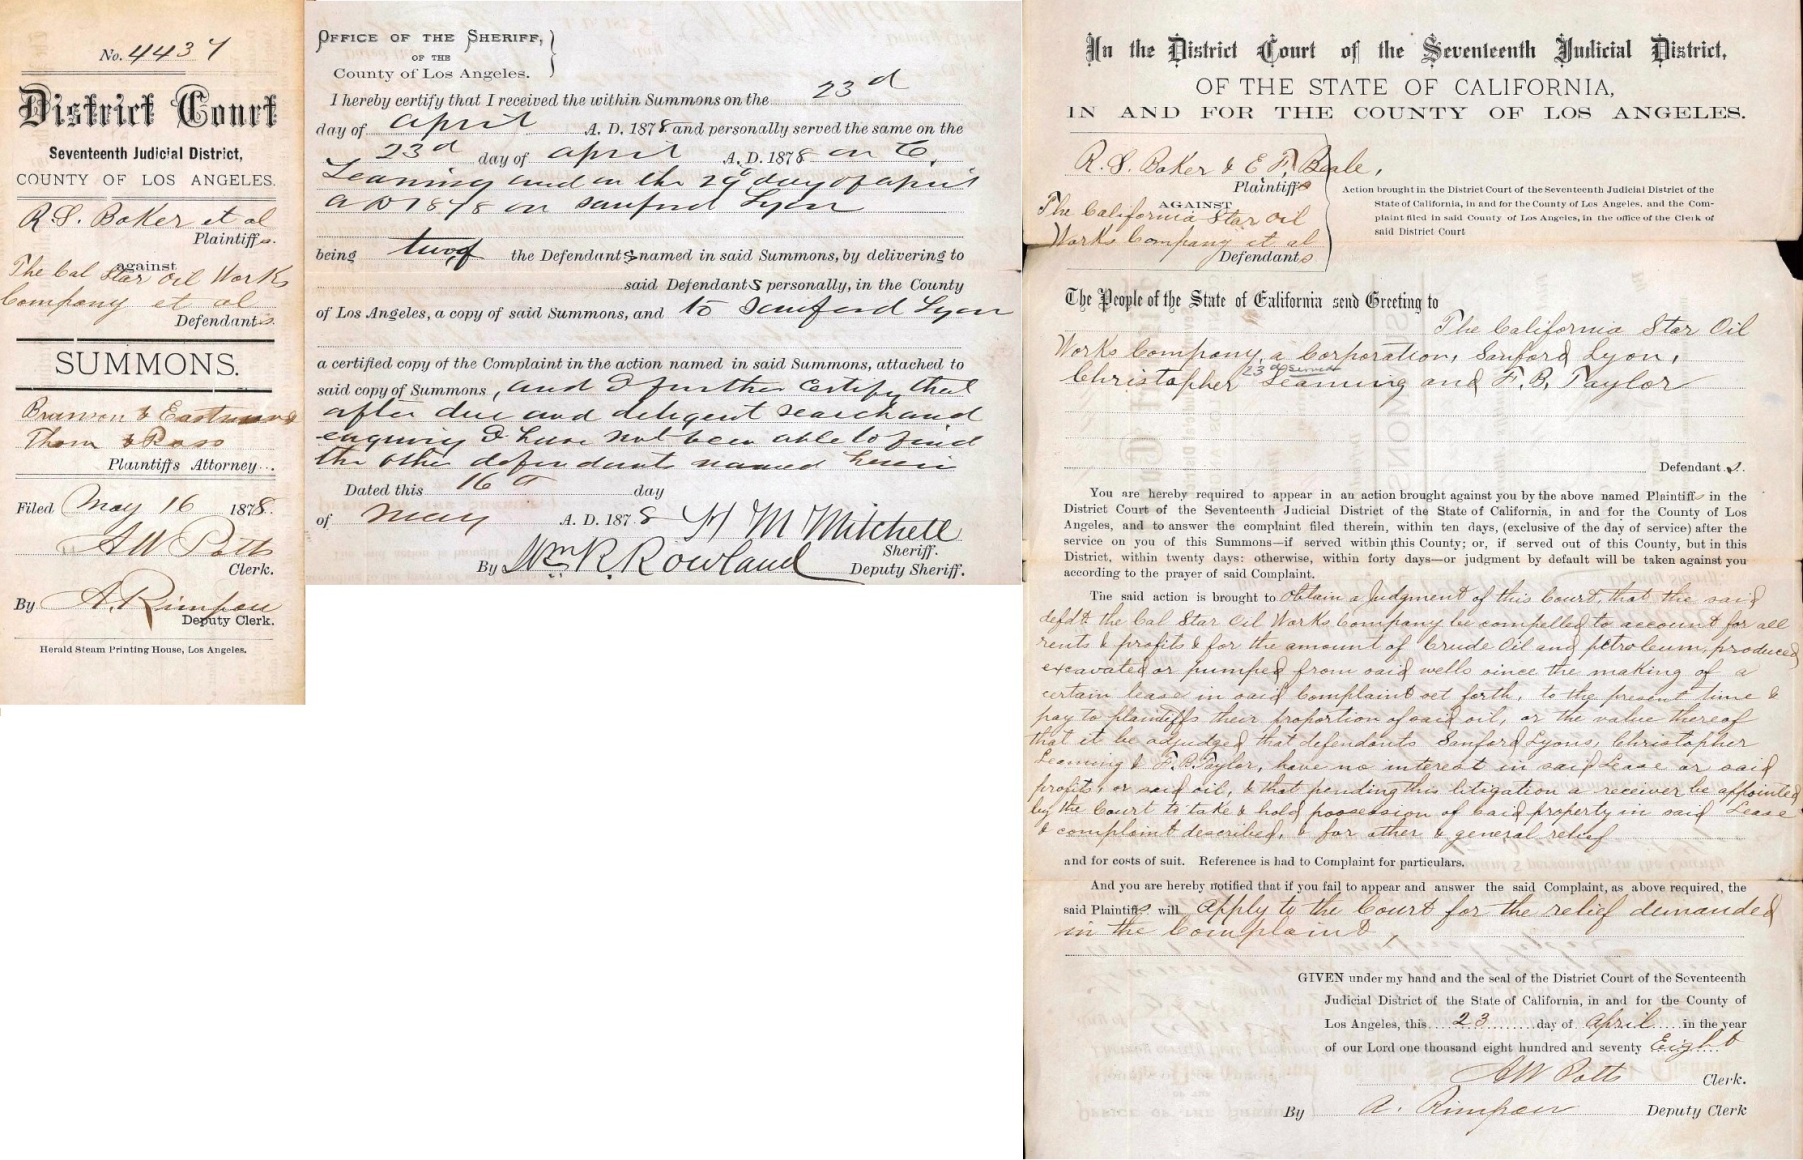 No. 4437
District Court
Seventeenth Judicial District,
COUNTY OF LOS ANGELES.
R. S. Baker et al
Plaintiffs.
against
The Cal Star Oil Works
Company et al
Defendants.
SUMMONS.
Brunson & Eastman &
Thom & Ross
Plaintiffs Attorney...
Filed May 16 1878.
A W Potts
Clerk.
By A. Rimpau
Deputy Clerk.
Herald Steam Printing House, Los Angeles.
OFFICE OF THE SHERIFF,
OF THE
County of Los Angeles.
I hereby certify that I received the within Summons on the 23d
day of April A. D. 1878 and personally served the same on the
23d day of April A. D. 1878 on C.
Leaming and on the 29 day of April
A D 1878 on Sanford Lyon
being two of the Defendants named in said Summons, by delivering to
said Defendants personally, in the County
of Los Angeles, a copy of said Summons, and to Sanford Lyon
a certified copy of the Complaint in the action named in said Summons, attached to
said copy of Summons, and I further certify that
after due and deligent search and
enquiry I have not been able to find
the other defendants named herein
Dated this 16th day
of May A. D. 1878 H M Mitchell
Sheriff.
By Wm R. Rowland Deputy Sheriff.
In the District Court of the Seventeenth Judicial District,
OF THE STATE OF CALIFORNIA,
IN AND FOR THE COUNTY OF LOS ANGELES.
R. S. Baker & E F. Beale,
Plaintiffs
AGAINST
The California Star Oil
Works Company et al
Defendants
Action brought in the District Court of the Seventeenth Judicial District of the
State of California, in and for the County of Los Angeles, and the Com-
plaint filed in said County of Los Angeles, in the office of the Clerk of
said District Court
The People of the State of California send Greeting to
The California Star Oil
Works Company, a Corporation, Sanford Lyon,
23d served
Christopher Leaming and F. B. Taylor
Defendants.
You are hereby required to appear in an action brought against you by the above named Plaintiffs in the
District Court of the Seventeenth Judicial District of the State of California, in and for the County of Los
Angeles, and to answer the complaint filed therein, within ten days, (exclusive of the day of service) after the
service on you of this Summons—if served within this County; or, if served out of this County, but in this
District, within twenty days: otherwise, within forty days—or judgment by default will be taken against you
according to the prayer of said Complaint.
The said action is brought to Obtain a Judgment of this Court, that the said
defdt the Cal Star Oil Works Company be compelled to account for all
rents & profits & for the amount of Crude Oil and petroleum, produced
excavated or pumped from said wells since the making of a
certain lease in said Complaint set forth, to the present time &
pay to plaintiffs their proportion of said oil, or the value thereof
that it be adjudged that defendants Sanford Lyons, Christopher
Leaming & F. B. Taylor, have no interest in said Lease or said
profits, or said oil, & that pending this litigation a receiver be appointed
by the Court to take & hold possession of said property in said Lease
& complaint described, & for other & general relief
and for costs of suit. Reference is had to Complaint for particulars.
And you are hereby notified that if you fail to appear and answer the said Complaint, as above required, the
said Plaintiffs will apply to the Court for the relief demanded
in the Complaint,
GIVEN under my hand and the seal of the District Court of the Seventeenth
Judicial District of the State of California, in and for the County of
Los Angeles, this 23 day of April in the year
of our Lord one thousand eight hundred and seventy Eight
A W Potts Clerk.
By A. Rimpau Deputy Clerk